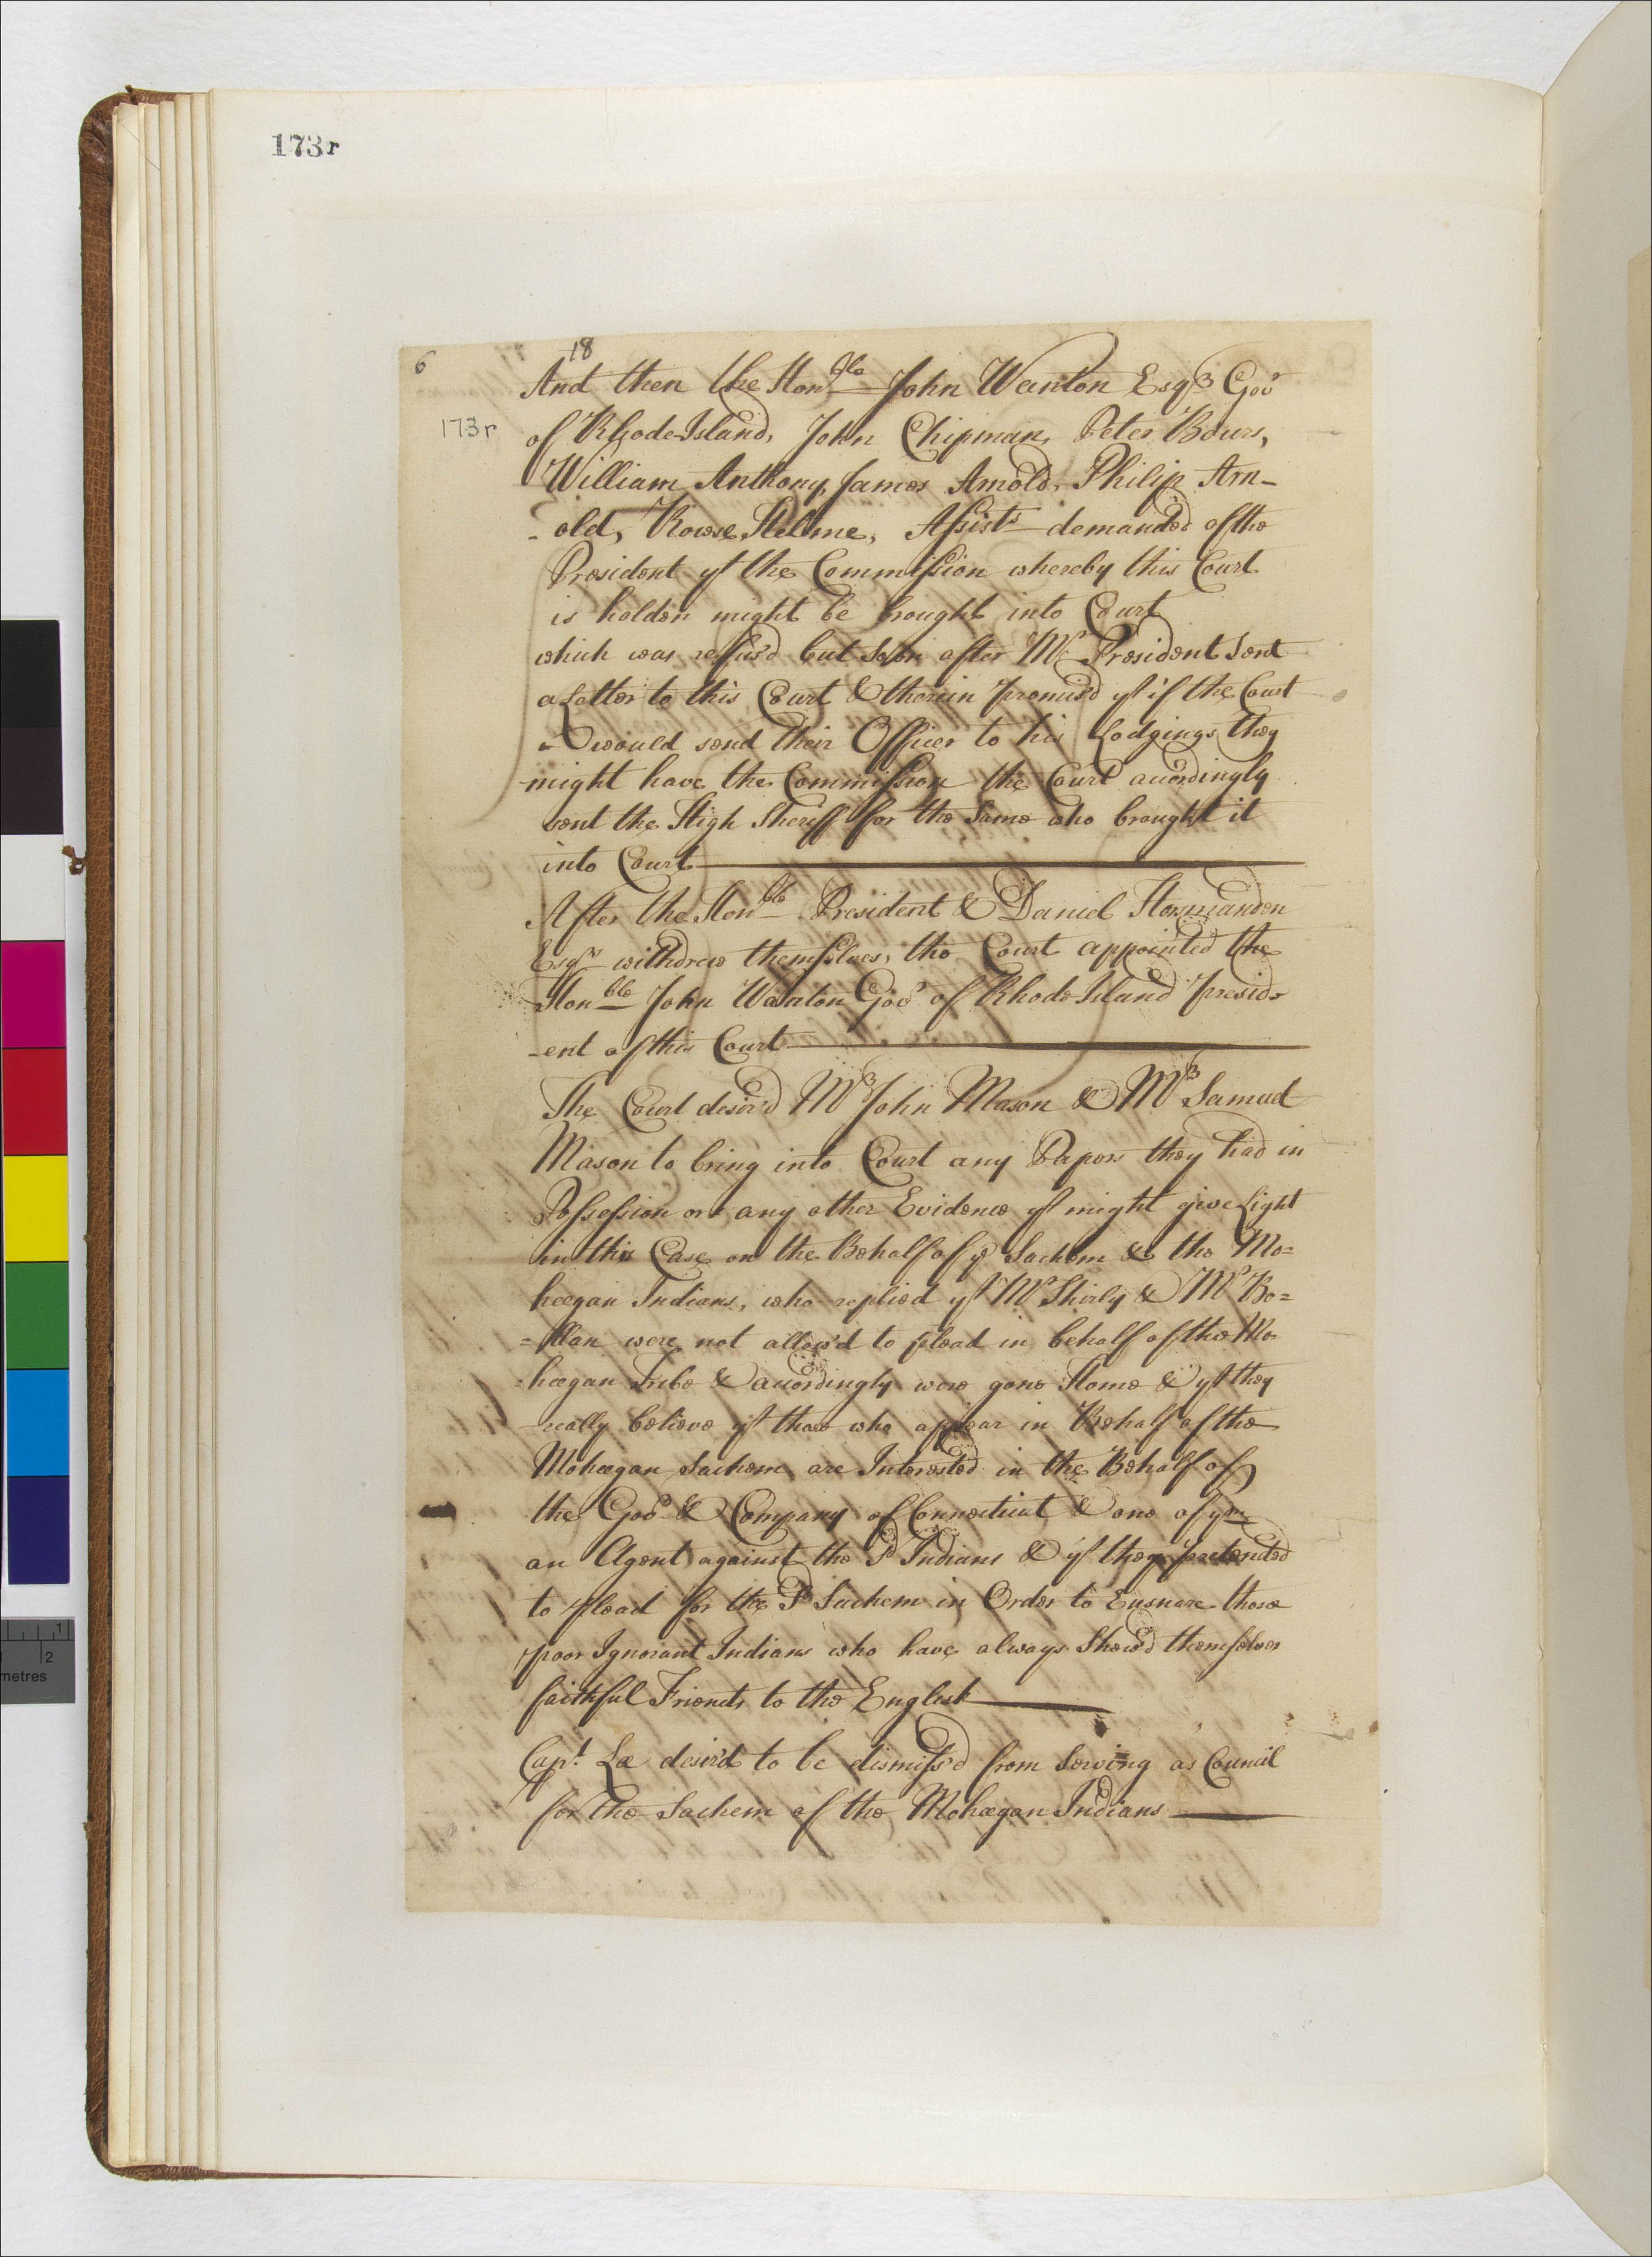 173r
6
18
And then the Honble John Wanton Esqr Govr
173r
of Rhode-Island, John Chipman, Peter Bours,
William Anthony, James Arnold, Philip Arn-
-old, Rowse Helme, Assists demanded of the
President yt the Commission whereby this Court
is holden might be brought into Court
which was refus'd but soon after Mr President sent
a Letter to this Court & therein promis'd yt if the Court
would send their Officer to his Lodgings they
might have the Commission the Court accordingly
sent the High Sheriff for the Same who brought it
into Court
After the Honble President & Daniel Horsmanden
Esqrs withdrew themselves, the Court appointed the
Honble John Wanton Govr of Rhode Island presid-
-ent of this Court
The Court desir'd Mr John Mason & Mr Samuel
Mason to bring into Court any Papers they had in
Possession or any other Evidence yt might give Light
in this Case on the Behalf of ye Sachem & the Mo=
heegan Indians, who replied yt Mr Shirly & Mr Bo=
=llan were not allow'd to plead in behalf of the Mo
=heegan Tribe & accordingly were gone Home & yt they
really believe yt those who appear in Behalf of the
Moheegan Sachem are Interested in the Behalf of
the Govr & Company of Connecticut & one of ym
an Agent against the sd Indians & yt they pretended
to plead for the sd Sachem in Order to Ensnare those
poor Ignorant Indians who have always Shew'd themselves
faithful Friends to the English
Capt. Lee desir'd to be dismiss'd from Serving as Council
for the Sachem of the Moheegan Indians
1
2
metres